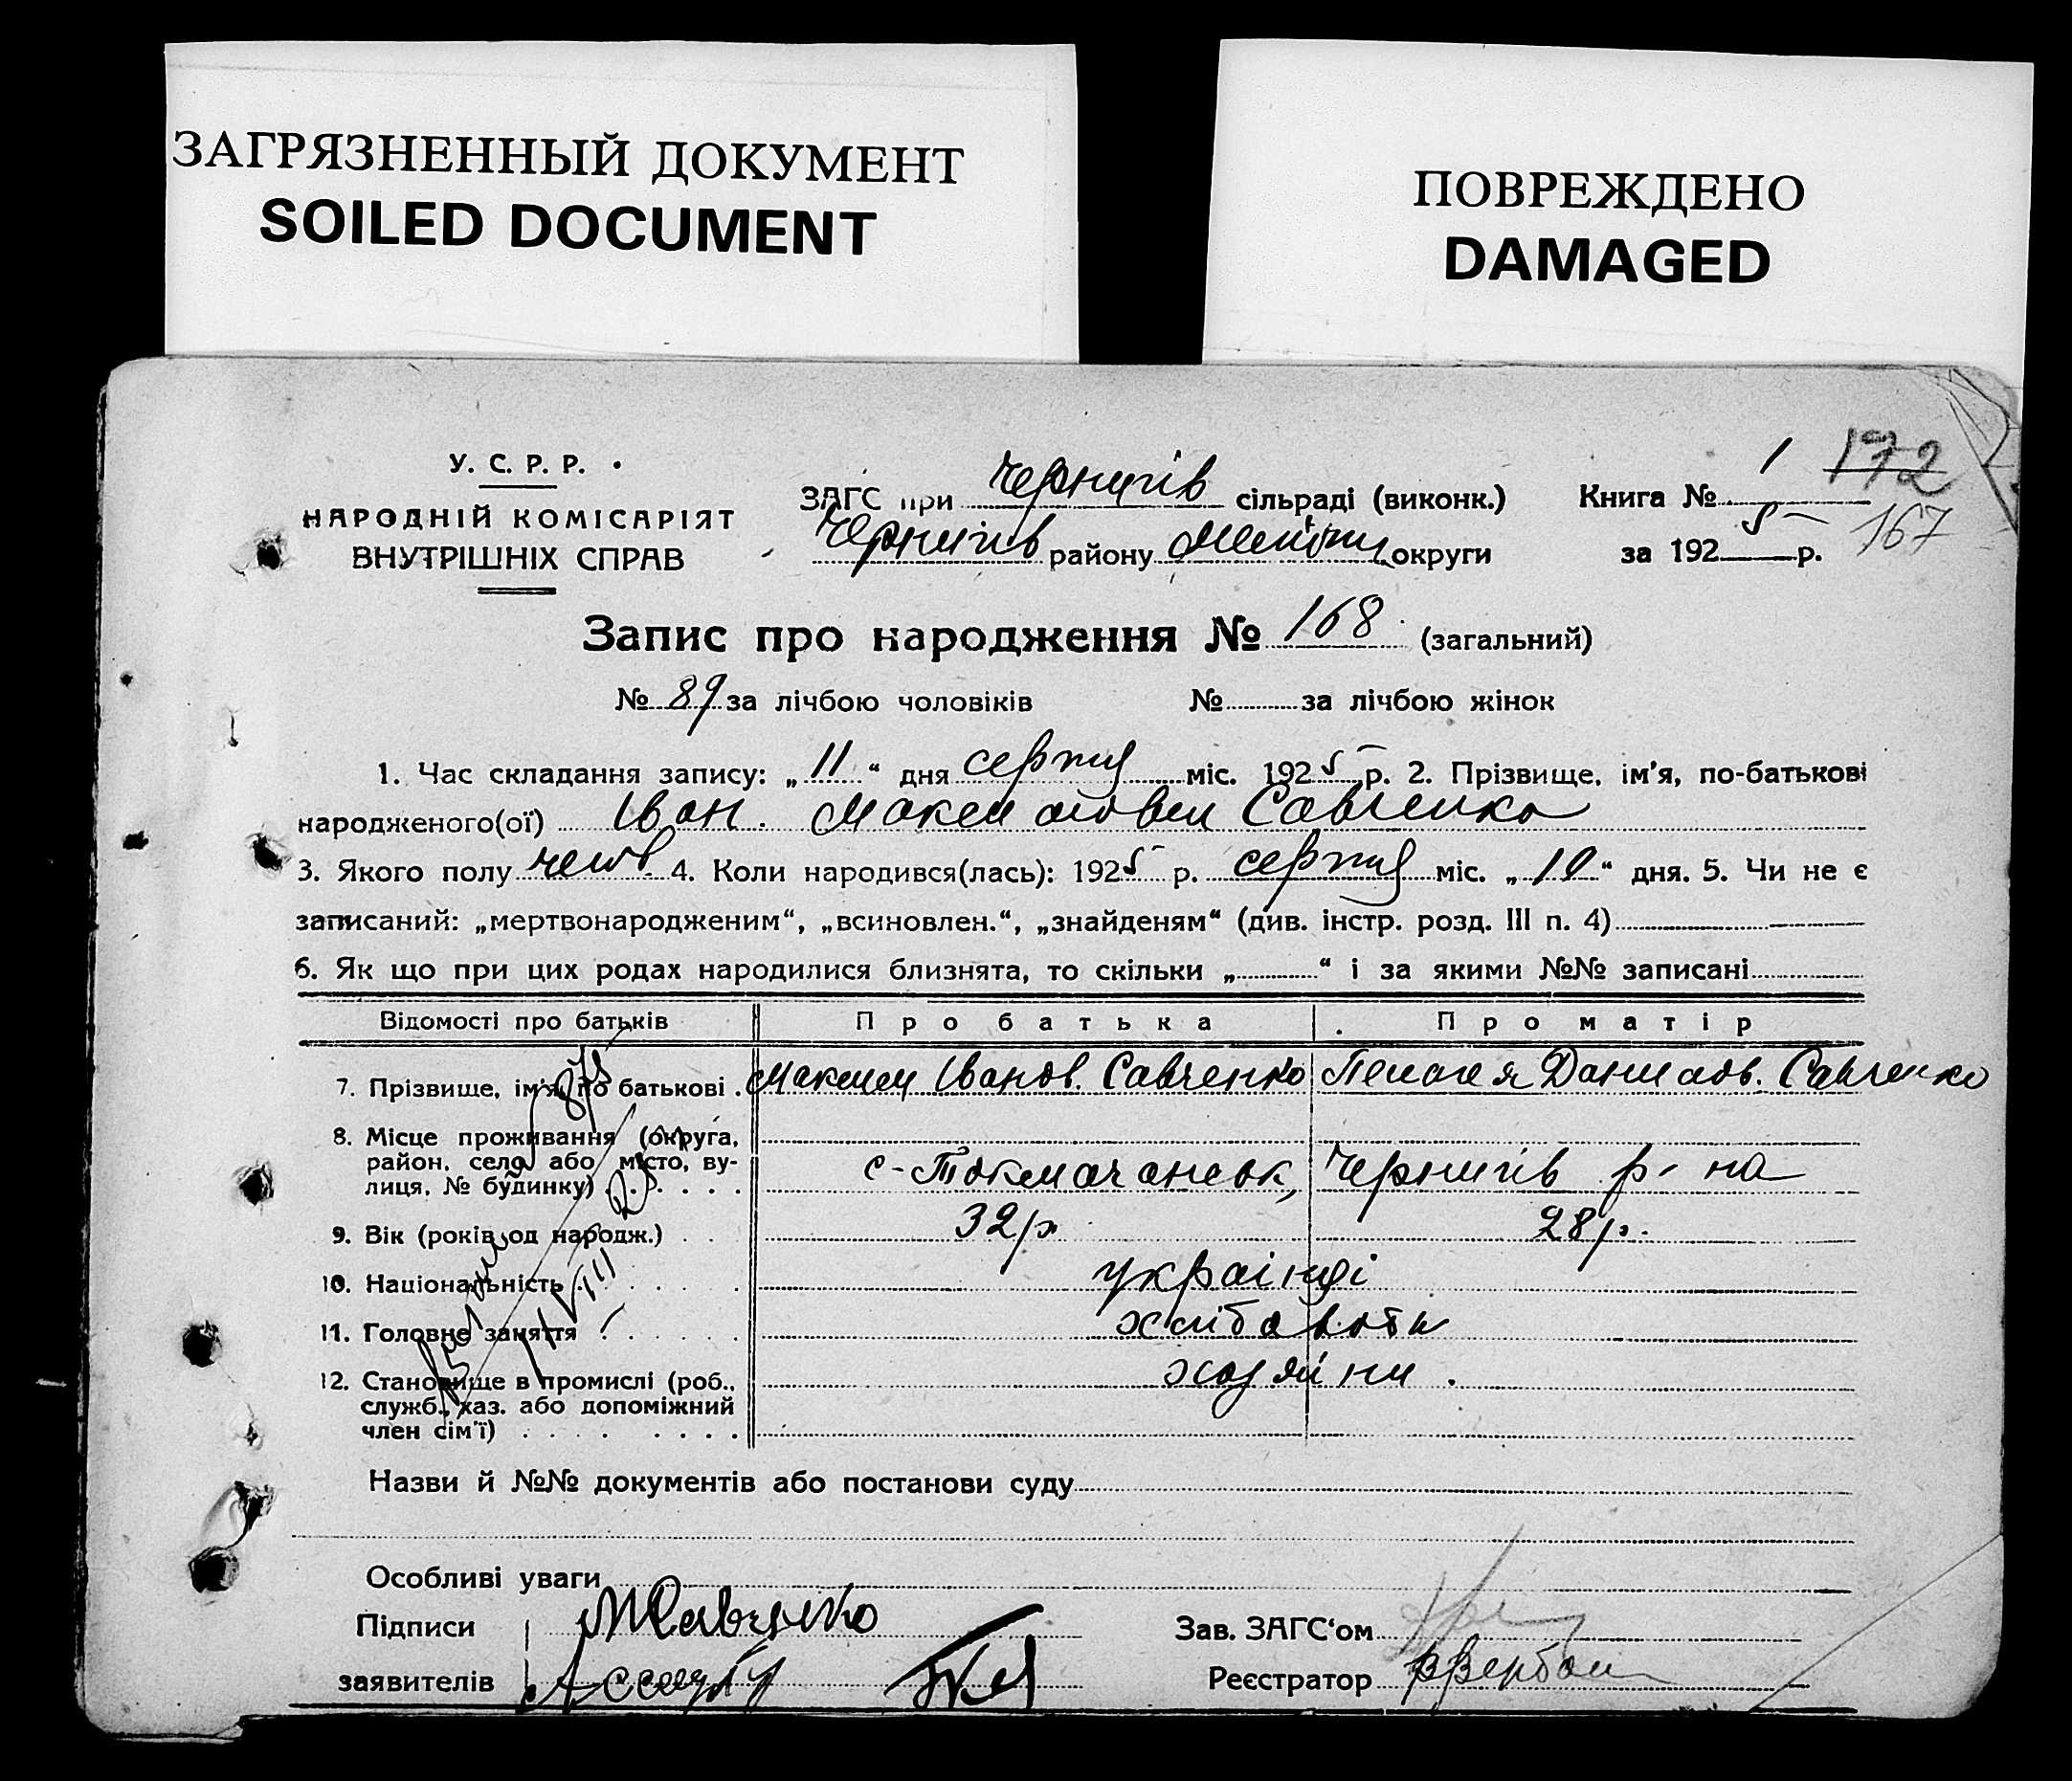 ЗАГРЯЗНЕННЫЙ ДОКУМЕНТ
SOILED DOCUMENT
ПОВРЕЖДЕНО
DAMAGED
У. С. Р. Р.
НАРОДНІЙ КОМІСАРІЯТ
ВНУТРІШНІХ СПРАВ
ЗАГС при Чернигів сільраді (виконк.)
Чернигів району округи
Книга № 1 172
за 1925 р. 167
Запис про народження № 168. (загальний)
№ 89 за лічбою чоловіків № за лічбою жінок
1. Час складання запису: „ 11 “ дня серпня міс. 1925 р. 2. Прізвище, ім'я, по-батькові
народженого(ої) Іван. Савченко
3. Якого полу 4. Коли народився(лась): 1925 р. серпня міс. „ 10 “ дня. 5. Чи не є
записаний: „мертвонародженим“, „всиновлен.“, „знайденям“ (див. інстр. розд. III п. 4)
6. Як що при цих родах народилися близнята, то скільки „ “ і за якими №№ записані
Відомості про батьків Про батька Про матір
7. Прізвище, ім'я, по батькові . Максим Іванов. Савченко Пелагея Данилов. Савченко
8. Місце проживання (округа,
район, село або місто, ву-
лиця, № будинку) с-Токмачанськ, Чернигів р-на
9. Вік (років од народж.) 32 р 28 р.
10. Національність українці
11. Головне заняття хлібороби
12. Становище в промислі (роб.,
служб., хаз. або допоміжний
член сім'ї) хозяїни .
Назви й №№ документів або постанови суду
Особливі уваги
Підписи МСавченко Зав. ЗАГС'ом
заявителів Реєстратор